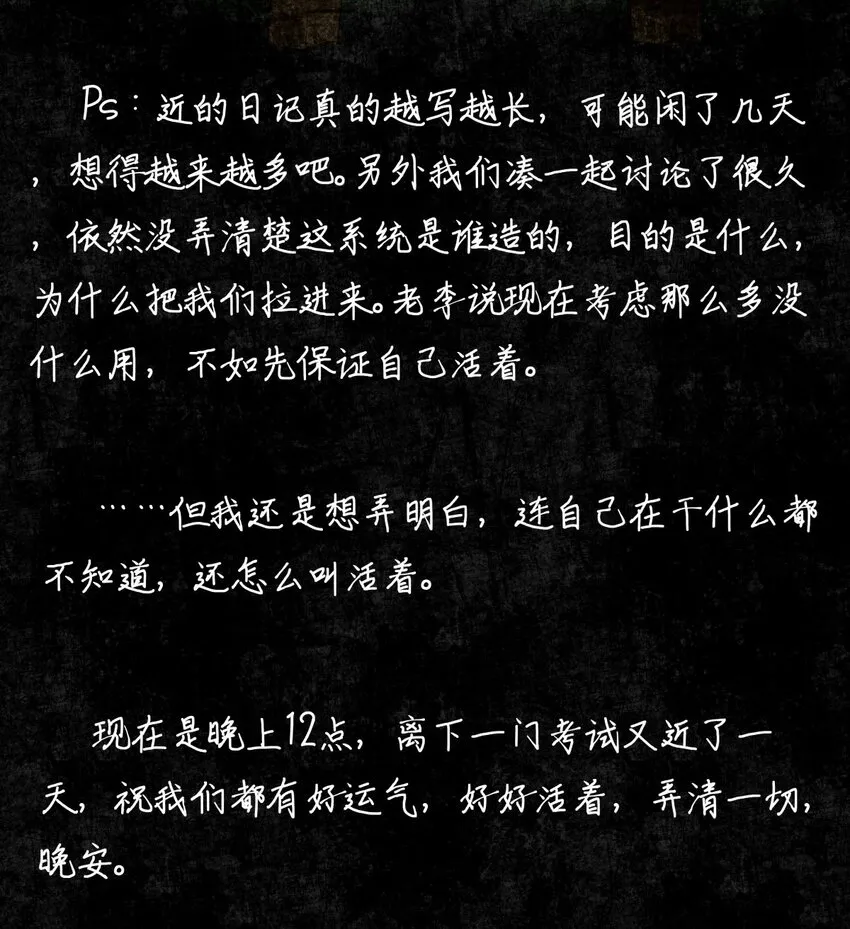 Ps：近的日记真的越写越长，可能闲了几天
，想得越来越多吧。另外我们凑一起讨论了很久
，依然没弄清楚这系统是谁造的，目的是什么，
为什么把我们拉进来。老李说现在考虑那么多没
什么用，不如先保证自己活着。
……但我还是想弄明白，连自己在干什么都
不知道，还怎么叫活着。
现在是晚上12点，离下一门考试又近了一
天，祝我们都有好运气，好好活着，弄清一切，
晚安。